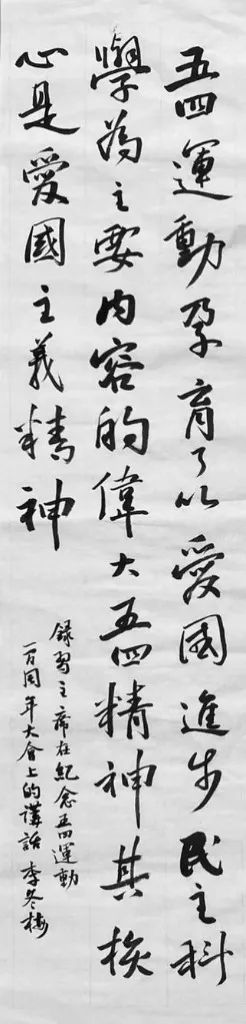 五四運動孕育了以愛國進步民主科
學為主要內容的偉大五四精神其核
心是愛國主義精神
錄習主席在紀念五四運動
一百周年大會上的講話 李冬梅